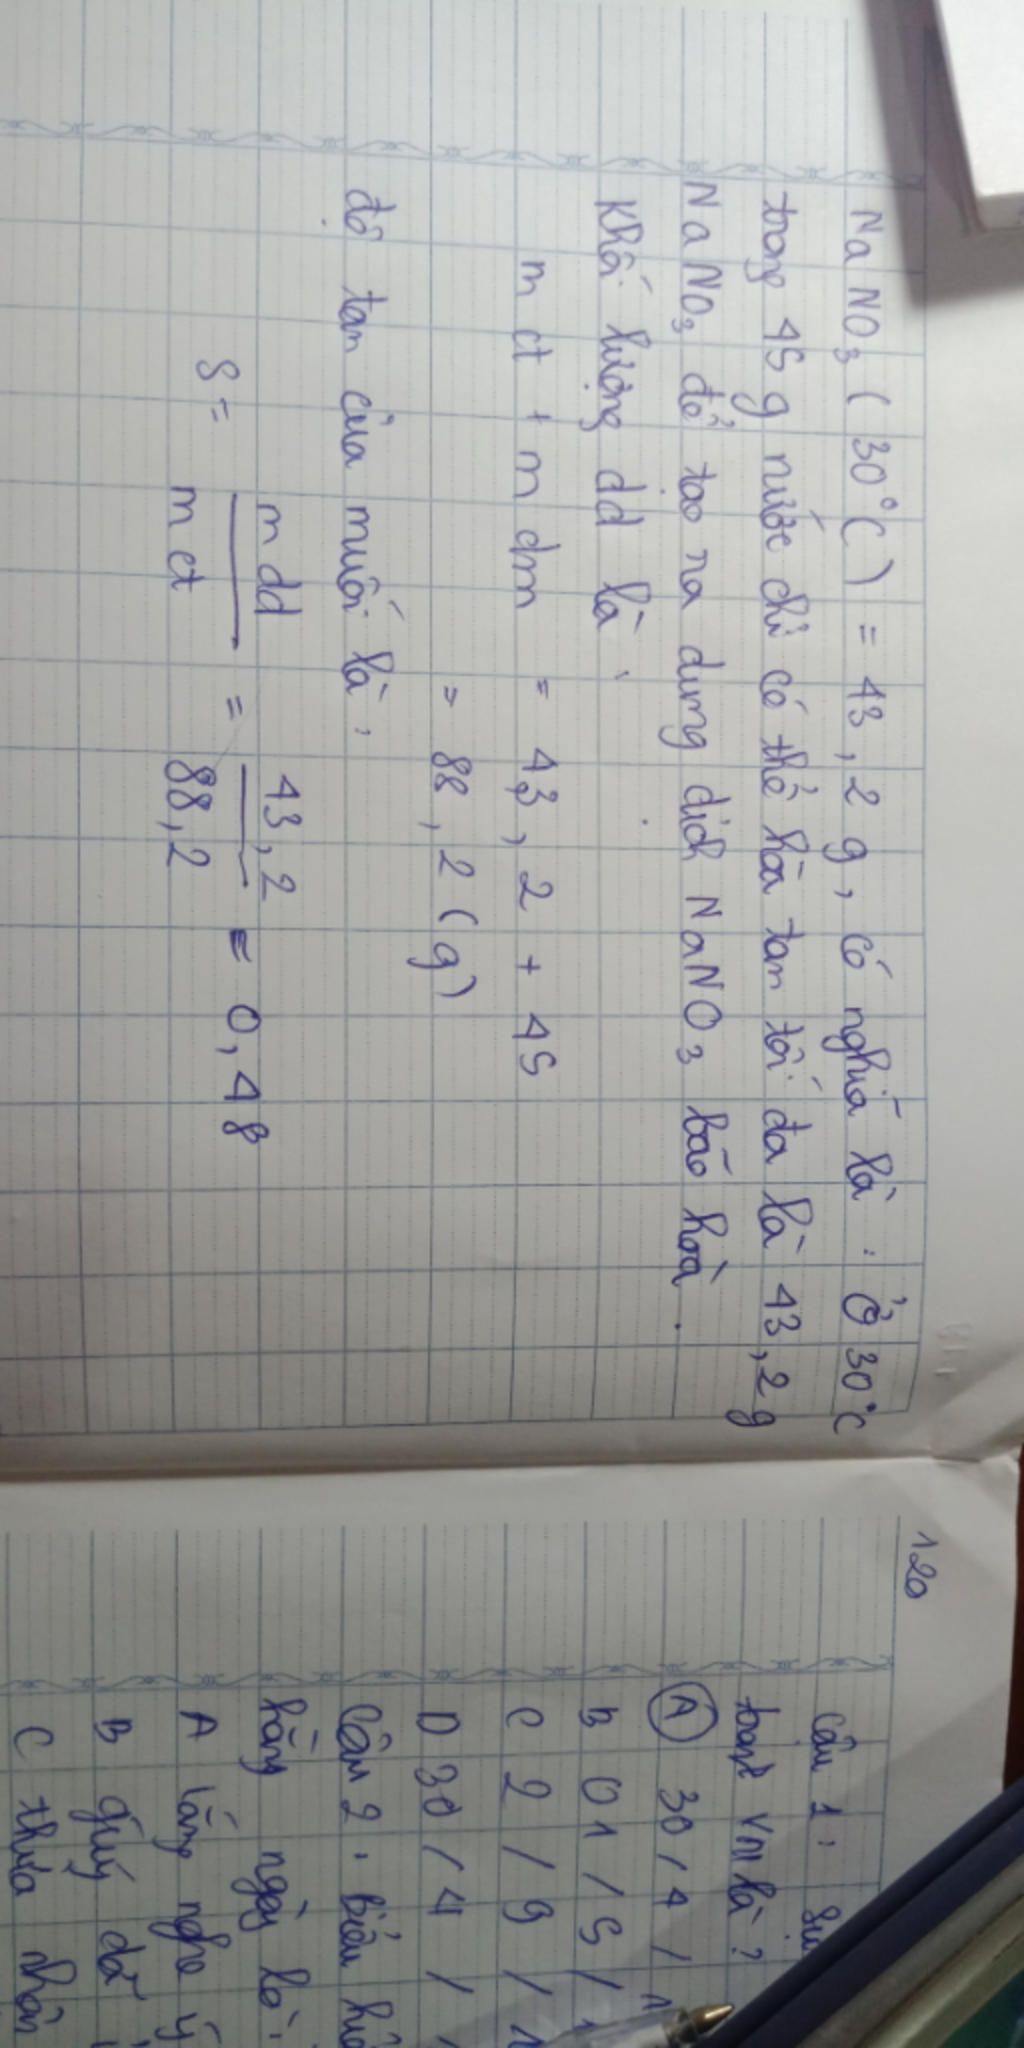 NaNO3 (30°C) = 43,2 g, có nghĩa là : Ở 30°C
trong 45 g nước chỉ có thể hòa tan tối đa là 43,2g
NaNO3 để tạo ra dung dịch NaNO3 bão hoà.
Khối lượng dd là :
m ct + m dm = 43,2 + 45
= 88,2 (g)
độ tan của muối là :
S = m dd / m ct = 43,2 / 88,2 = 0,48
120
Câu 1 :
VN là ?
A 30 / 4 /
B 01 / 5 /
C 2 / 9 /
D 30 / 4 /
Câu 2 : biểu
hằng ngày là :
A lắng nghe ý
B giúp đỡ
C thừa nhận